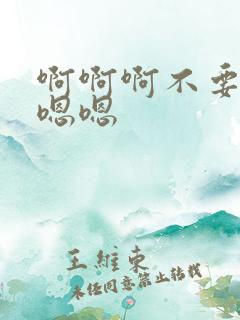 啊啊啊不要
嗯嗯
王维东
未经同意禁止转载